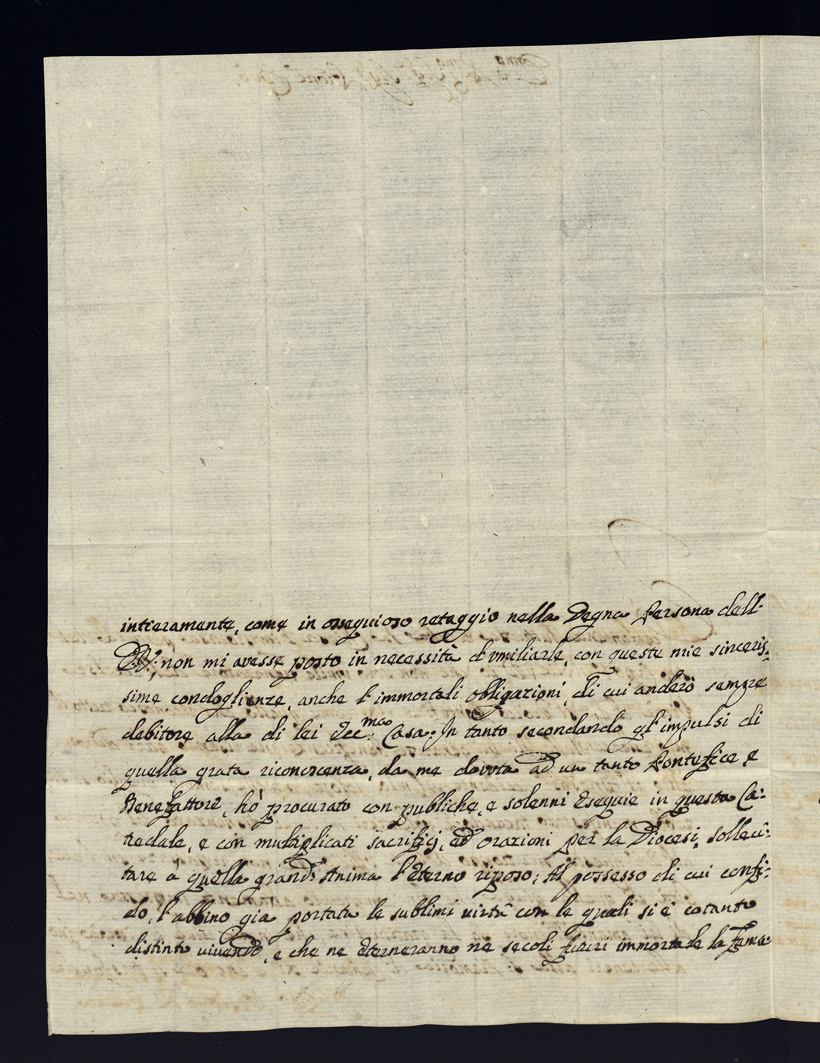 intieramente, come in ossequioso retaggio nella Degna Persona dell'
E.V; non mi avesse posto in necessità d'vmiliarle, con queste mie sinceris,
sime condoglienze, anche l'immortali obligazioni, di cui anderò sempre
debitore alla di lei Ecc.ma Casa. In tanto secondando gl'impulsi di
quella grata riconoscenza, da me dovuta ad un tanto Pontefice e
Benefattore, hò procurato con publiche, e solenni Esequie in questa Ca:
tedale, e con multiplicati sacrifizj, ed orazioni per la Diocesi, solleci:
tare à quella grand'Anima l'Eterno riposo; Al possesso di cui confi:
do, l'abbino gia portata le sublimi virtù con le quali si è cotanto
distinto vivendo, e che ne Eterneranno ne secoli futuri immortale la Fama